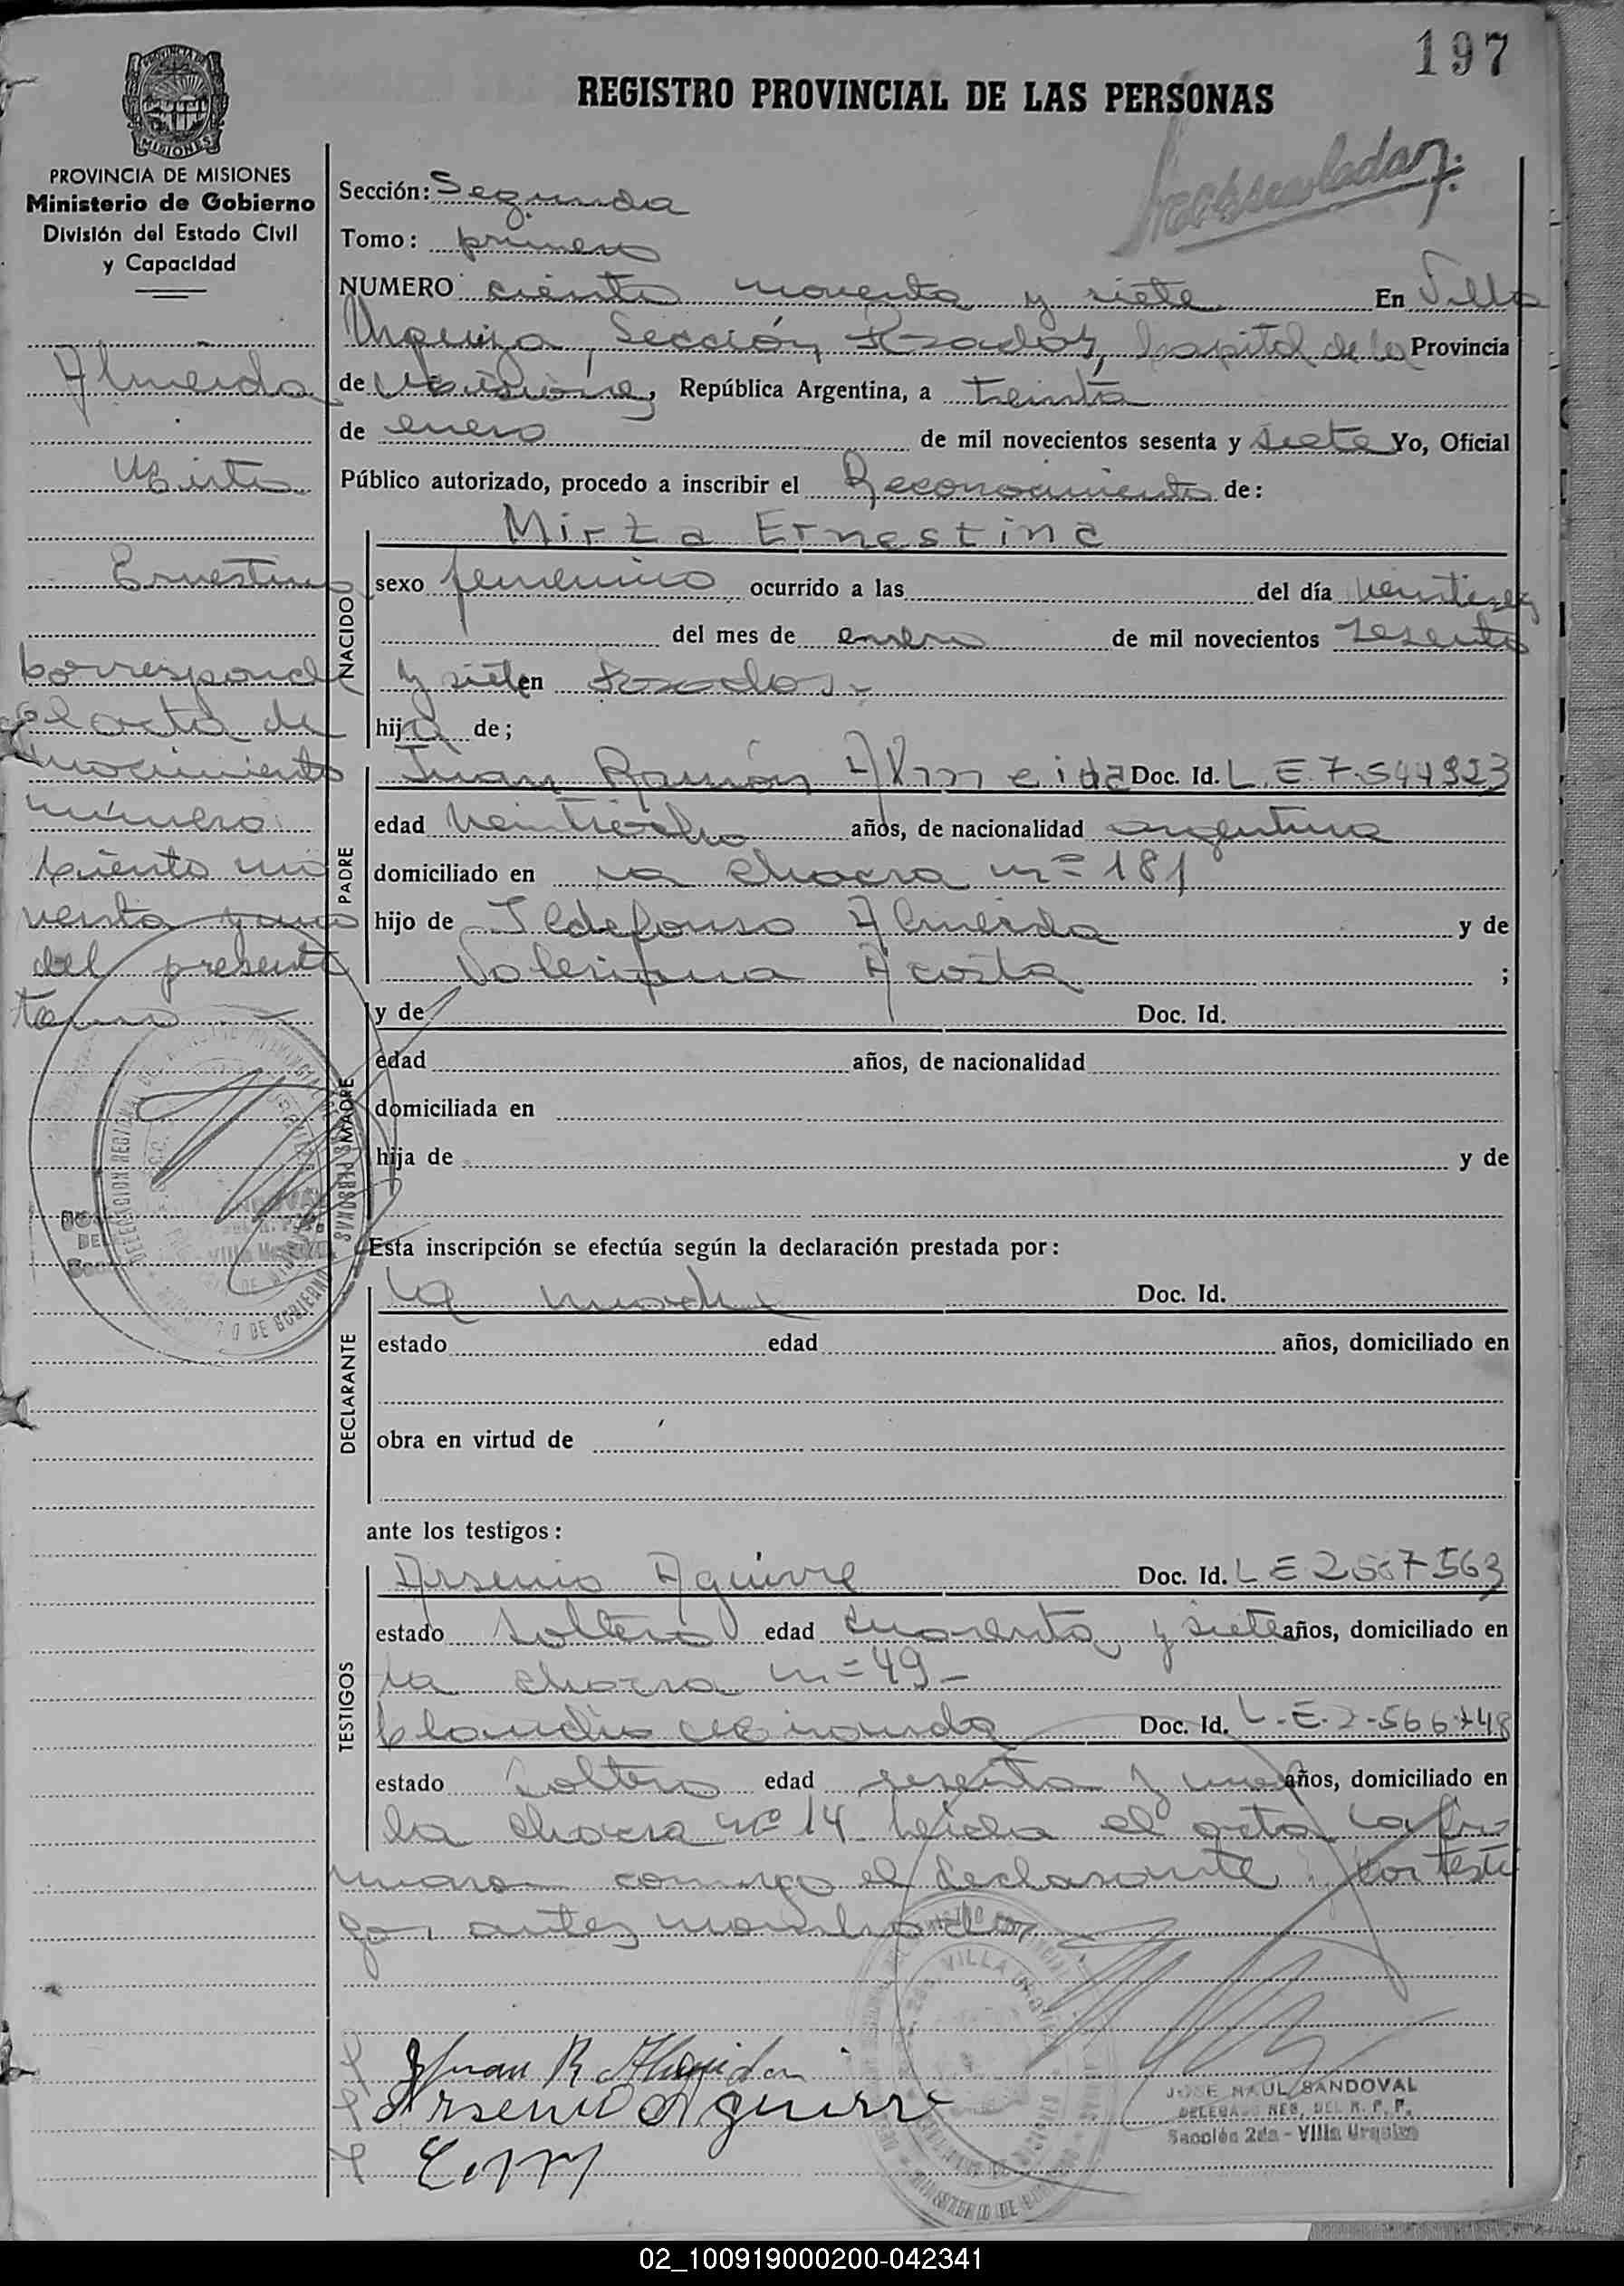 197
REGISTRO PROVINCIAL DE LAS PERSONAS
MISIONES
PROVINCIA DE MISIONES
Ministerio de Gobierno
División del Estado Civil
y Capacidad
Almeida
Mirta
Ernestina
Corresponde
el acta de
nacimiento
número
ciento no
venta y uno
del presente
tomo
Sección: Segunda
Tomo: primero
NUMERO ciento noventa y siete En Villa
Urquiza, Sección Posadas, Capital de la Provincia
de Misiones, República Argentina, a treinta
de enero de mil novecientos sesenta y siete Yo, Oficial
Público autorizado, procedo a inscribir el Reconocimiento de:
NACIDO
Mirta Ernestina
sexo femenino ocurrido a las del día veintiseis
del mes de enero de mil novecientos sesenta
y siete en Posadas
hija de;
PADRE
Juan Ramón Almeida Doc. Id. L.E. 7.544923
edad veintiocho años, de nacionalidad argentina
domiciliado en la chacra nº 181
hijo de Ildefonso Almeida y de
Valeriana Acosta ;
MADRE
y de Doc. Id.
edad años, de nacionalidad
domiciliada en
hija de y de
Esta inscripción se efectúa según la declaración prestada por:
DECLARANTE
la madre Doc. Id.
estado edad años, domiciliado en
obra en virtud de
ante los testigos:
TESTIGOS
Arsenio Aguirre Doc. Id. L E 2567563
estado soltero edad cuarenta y siete años, domiciliado en
la chacra nº 49 -
Claudio Miranda Doc. Id. L.E. 2-566748
estado soltero edad sesenta y uno años, domiciliado en
la chacra nº 14 leída el acta la fir
maron conmigo el declarante y los testi
gos antes nombrados
Juan R Almeida
Arsenio Aguirre
C. M
JOSE RAUL SANDOVAL
DELEGADO REG. DEL R. P. P.
Sección 2da - Villa Urquiza
02_100919000200-042341